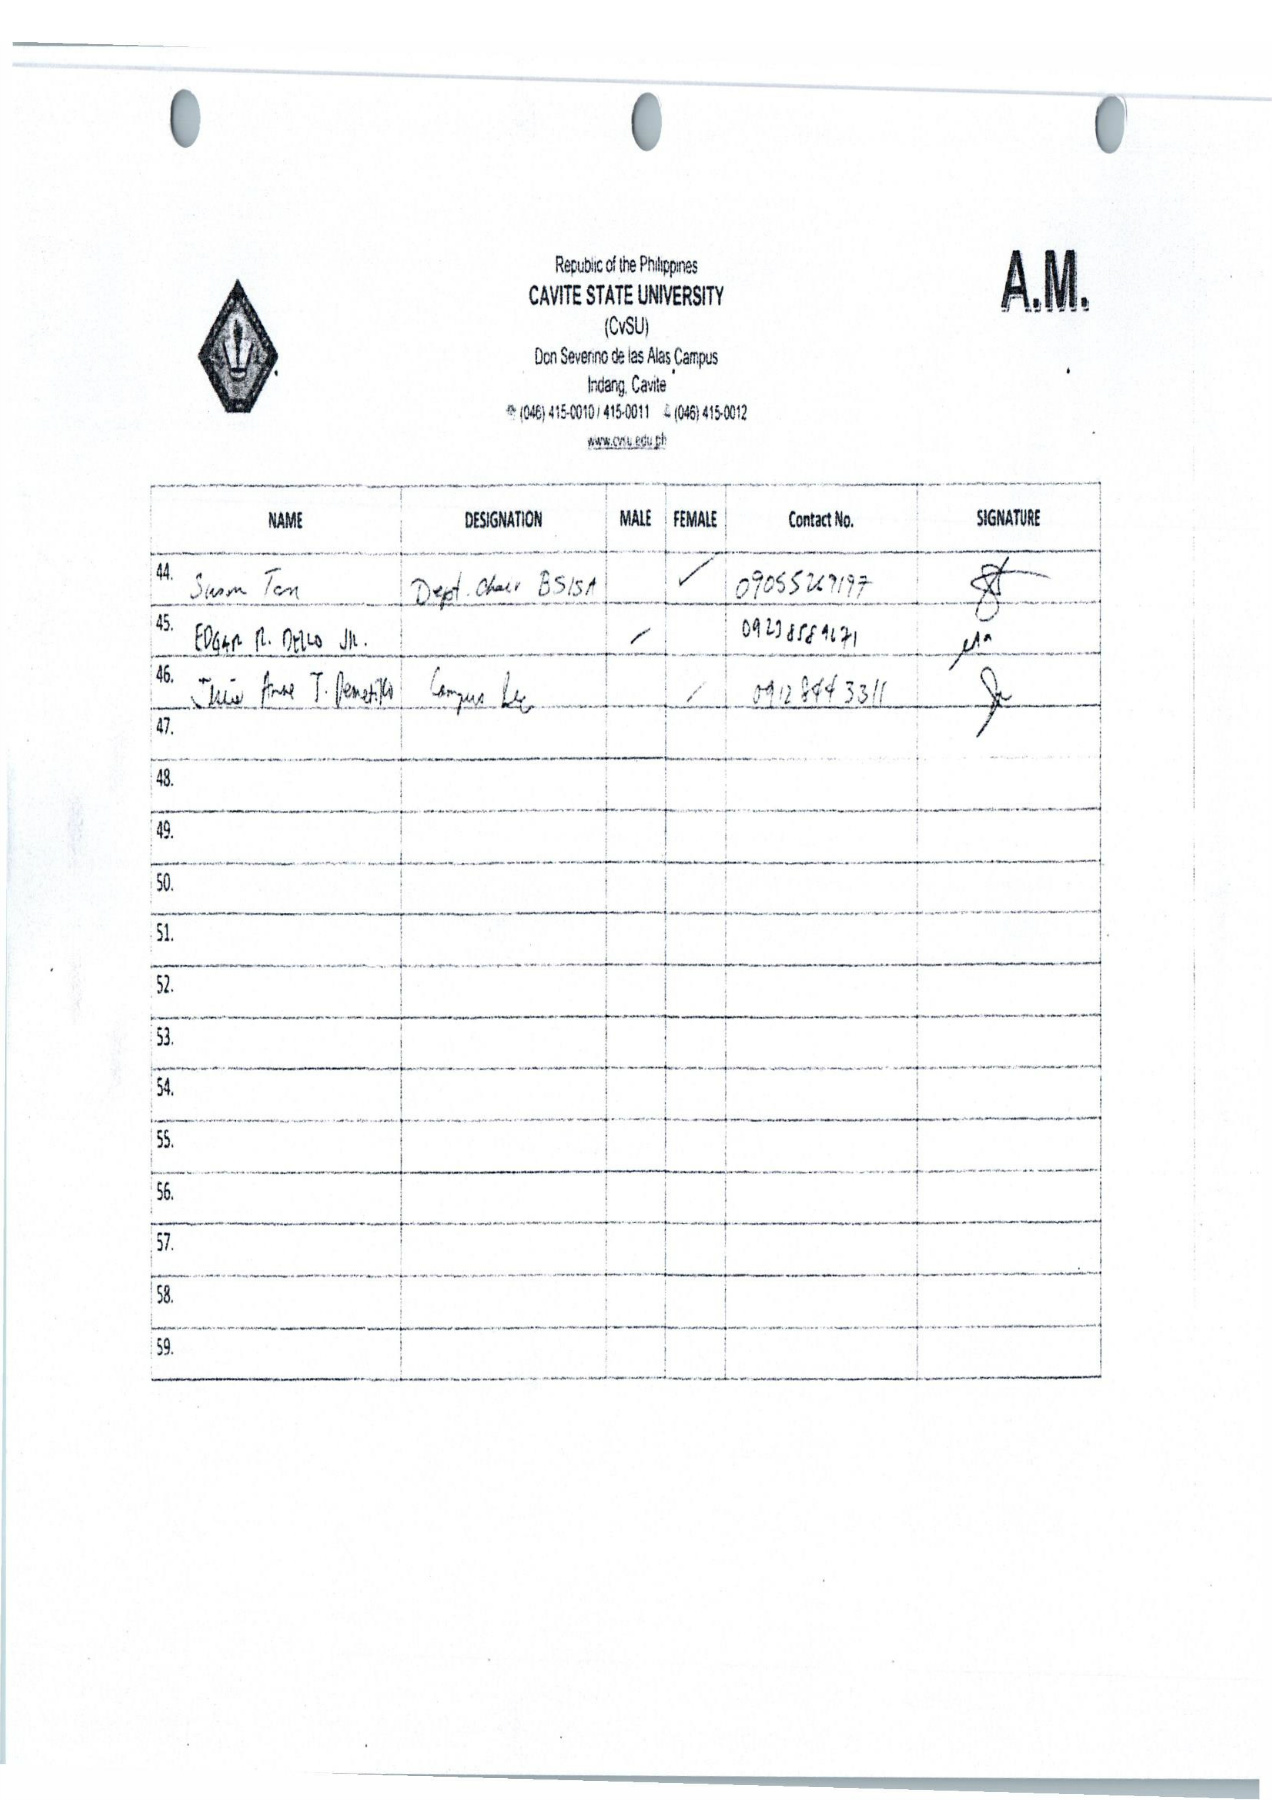 Republic of the Philippines
A.M.
CAVITE STATE UNIVERSITY
(CvSU)
Don Severino de las Alas Campus
Indang, Cavite
(046) 415-0010 / 415-0011 (046) 415-0012
www.cvsu.edu.ph
NAME DESIGNATION MALE FEMALE Contact No. SIGNATURE
44. Susan Tan Dept. Chair ✓
45. EDGAR R. DELLO JR.
46. Anne T. Campus 09128443311
47.
48.
49.
50.
51.
52.
53.
54.
55.
56.
57.
58.
59.